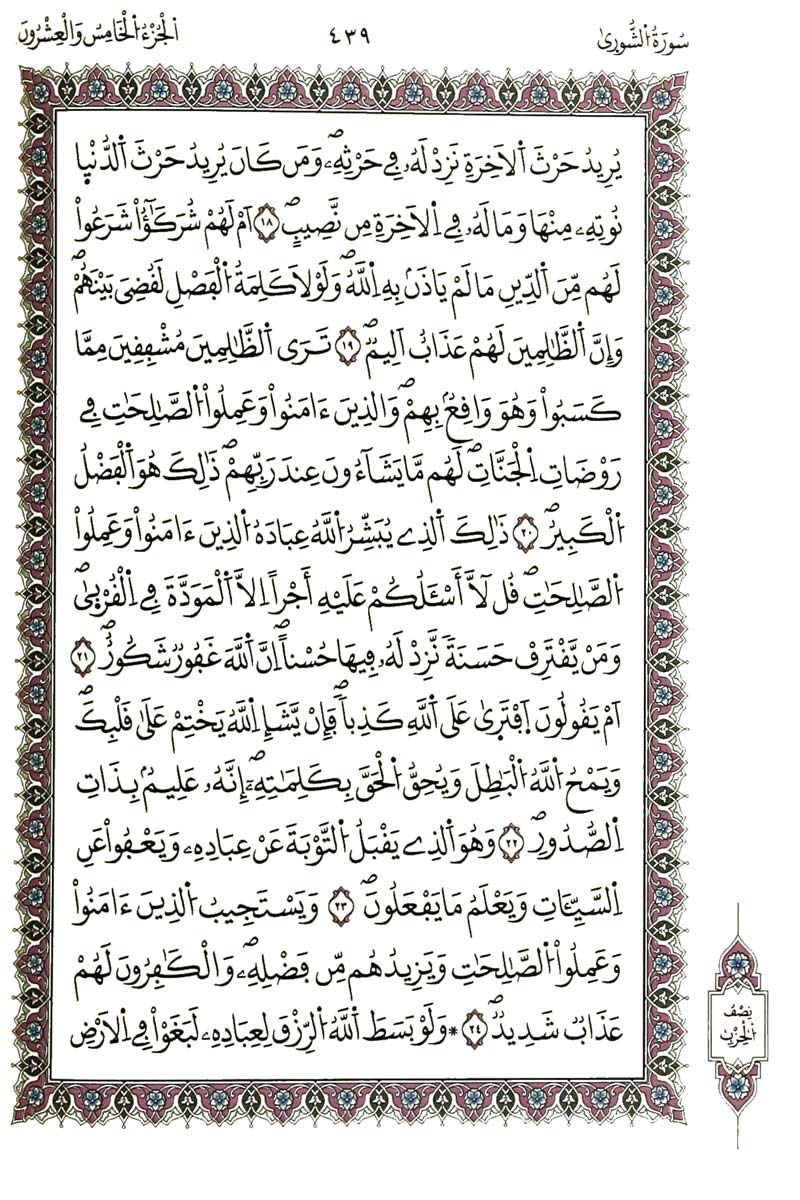 سُورَةُ الشُّورىٰ
٤٣٩
الجُزْءُ الْخَامِسُ وَالْعِشْرُونَ
يُرِيدُ حَرْثَ اَ۬لَاخِرَةِ نَزِدْ لَهُۥ فِے حَرْثِهِۦۖ وَمَن كَانَ يُرِيدُ حَرْثَ اَ۬لدُّنْي۪ا
نُوتِهِۦ مِنْهَا وَمَا لَهُۥ فِے اِ۬لَاخِرَةِ مِن نَّصِيبٍۖ ١٨ اَمْ لَهُمْ شُرَكَٰٓؤُاْ شَرَعُواْ
لَهُم مِّنَ اَ۬لدِّينِ مَا لَمْ يَاذَنۢ بِهِ اِ۬للَّهُۖ وَلَوْلَا كَلِمَةُ اُ۬لْفَصْلِ لَقُضِيَ بَيْنَهُمْۖ
وَإِنَّ اَ۬لظَّٰلِمِينَ لَهُمْ عَذَابٌ اَلِيمٌۖ ١٩ تَرَى اَ۬لظَّٰلِمِينَ مُشْفِقِينَ مِمَّا
كَسَبُواْ وَهُوَ وَاقِعُۢ بِهِمْۖ وَالذِينَ ءَامَنُواْ وَعَمِلُواْ اُ۬لصَّٰلِحَٰتِ فِے
رَوْضَاتِ اِ۬لْجَنَّاتِۖ لَهُم مَّا يَشَآءُونَ عِندَ رَبِّهِمْۖ ذَٰلِكَ هُوَ اَ۬لْفَضْلُ
اُ۬لْكَبِيرُۖ ٢٠ ذَٰلِكَ اَ۬لذِے يُبَشِّرُ اُ۬للَّهُ عِبَادَهُ اُ۬لذِينَ ءَامَنُواْ وَعَمِلُواْ
اُ۬لصَّٰلِحَٰتِۖ قُل لَّآ أَسْـَٔلُكُمْ عَلَيْهِ أَجْراً اِلَّا اَ۬لْمَوَدَّةَ فِے اِ۬لْقُرْب۪ىٰۖ
وَمَنْ يَّقْتَرِفْ حَسَنَةً نَّزِدْ لَهُۥ فِيهَا حُسْناًۖ اِنَّ اَ۬للَّهَ غَفُورٌ شَكُورٌۖ ٢١
اَمْ يَقُولُونَ اَ۪فْتَر۪ىٰ عَلَى اَ۬للَّهِ كَذِباًۖ فَإِنْ يَّشَإِ اِ۬للَّهُ يَخْتِمْ عَلَىٰ قَلْبِكَۖ
وَيَمْحُ اُ۬للَّهُ اُ۬لْبَٰطِلَ وَيُحِقُّ اُ۬لْحَقَّ بِكَلِمَٰتِهِۦٓۖ إِنَّهُۥ عَلِيمُۢ بِذَاتِ
اِ۬لصُّدُورِۖ ٢٢ وَهُوَ اَ۬لذِے يَقْبَلُ اُ۬لتَّوْبَةَ عَنْ عِبَادِهِۦ وَيَعْفُواْ عَنِ
اِ۬لسَّيِّـَٔاتِ وَيَعْلَمُ مَا يَفْعَلُونَۖ ٢٣ وَيَسْتَجِيبُ اُ۬لذِينَ ءَامَنُواْ
وَعَمِلُواْ اُ۬لصَّٰلِحَٰتِ وَيَزِيدُهُم مِّن فَضْلِهِۦۖ وَالْكَٰفِرُونَ لَهُمْ
عَذَابٌ شَدِيدٌۖ ٢٤ *وَلَوْ بَسَطَ اَ۬للَّهُ اُ۬لرِّزْقَ لِعِبَادِهِۦ لَبَغَوْاْ فِے اِ۬لَارْضِ
نِصْفُ
الْحِزْبِ